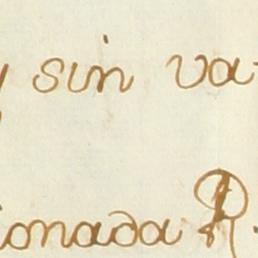 y sin va
ionada R.